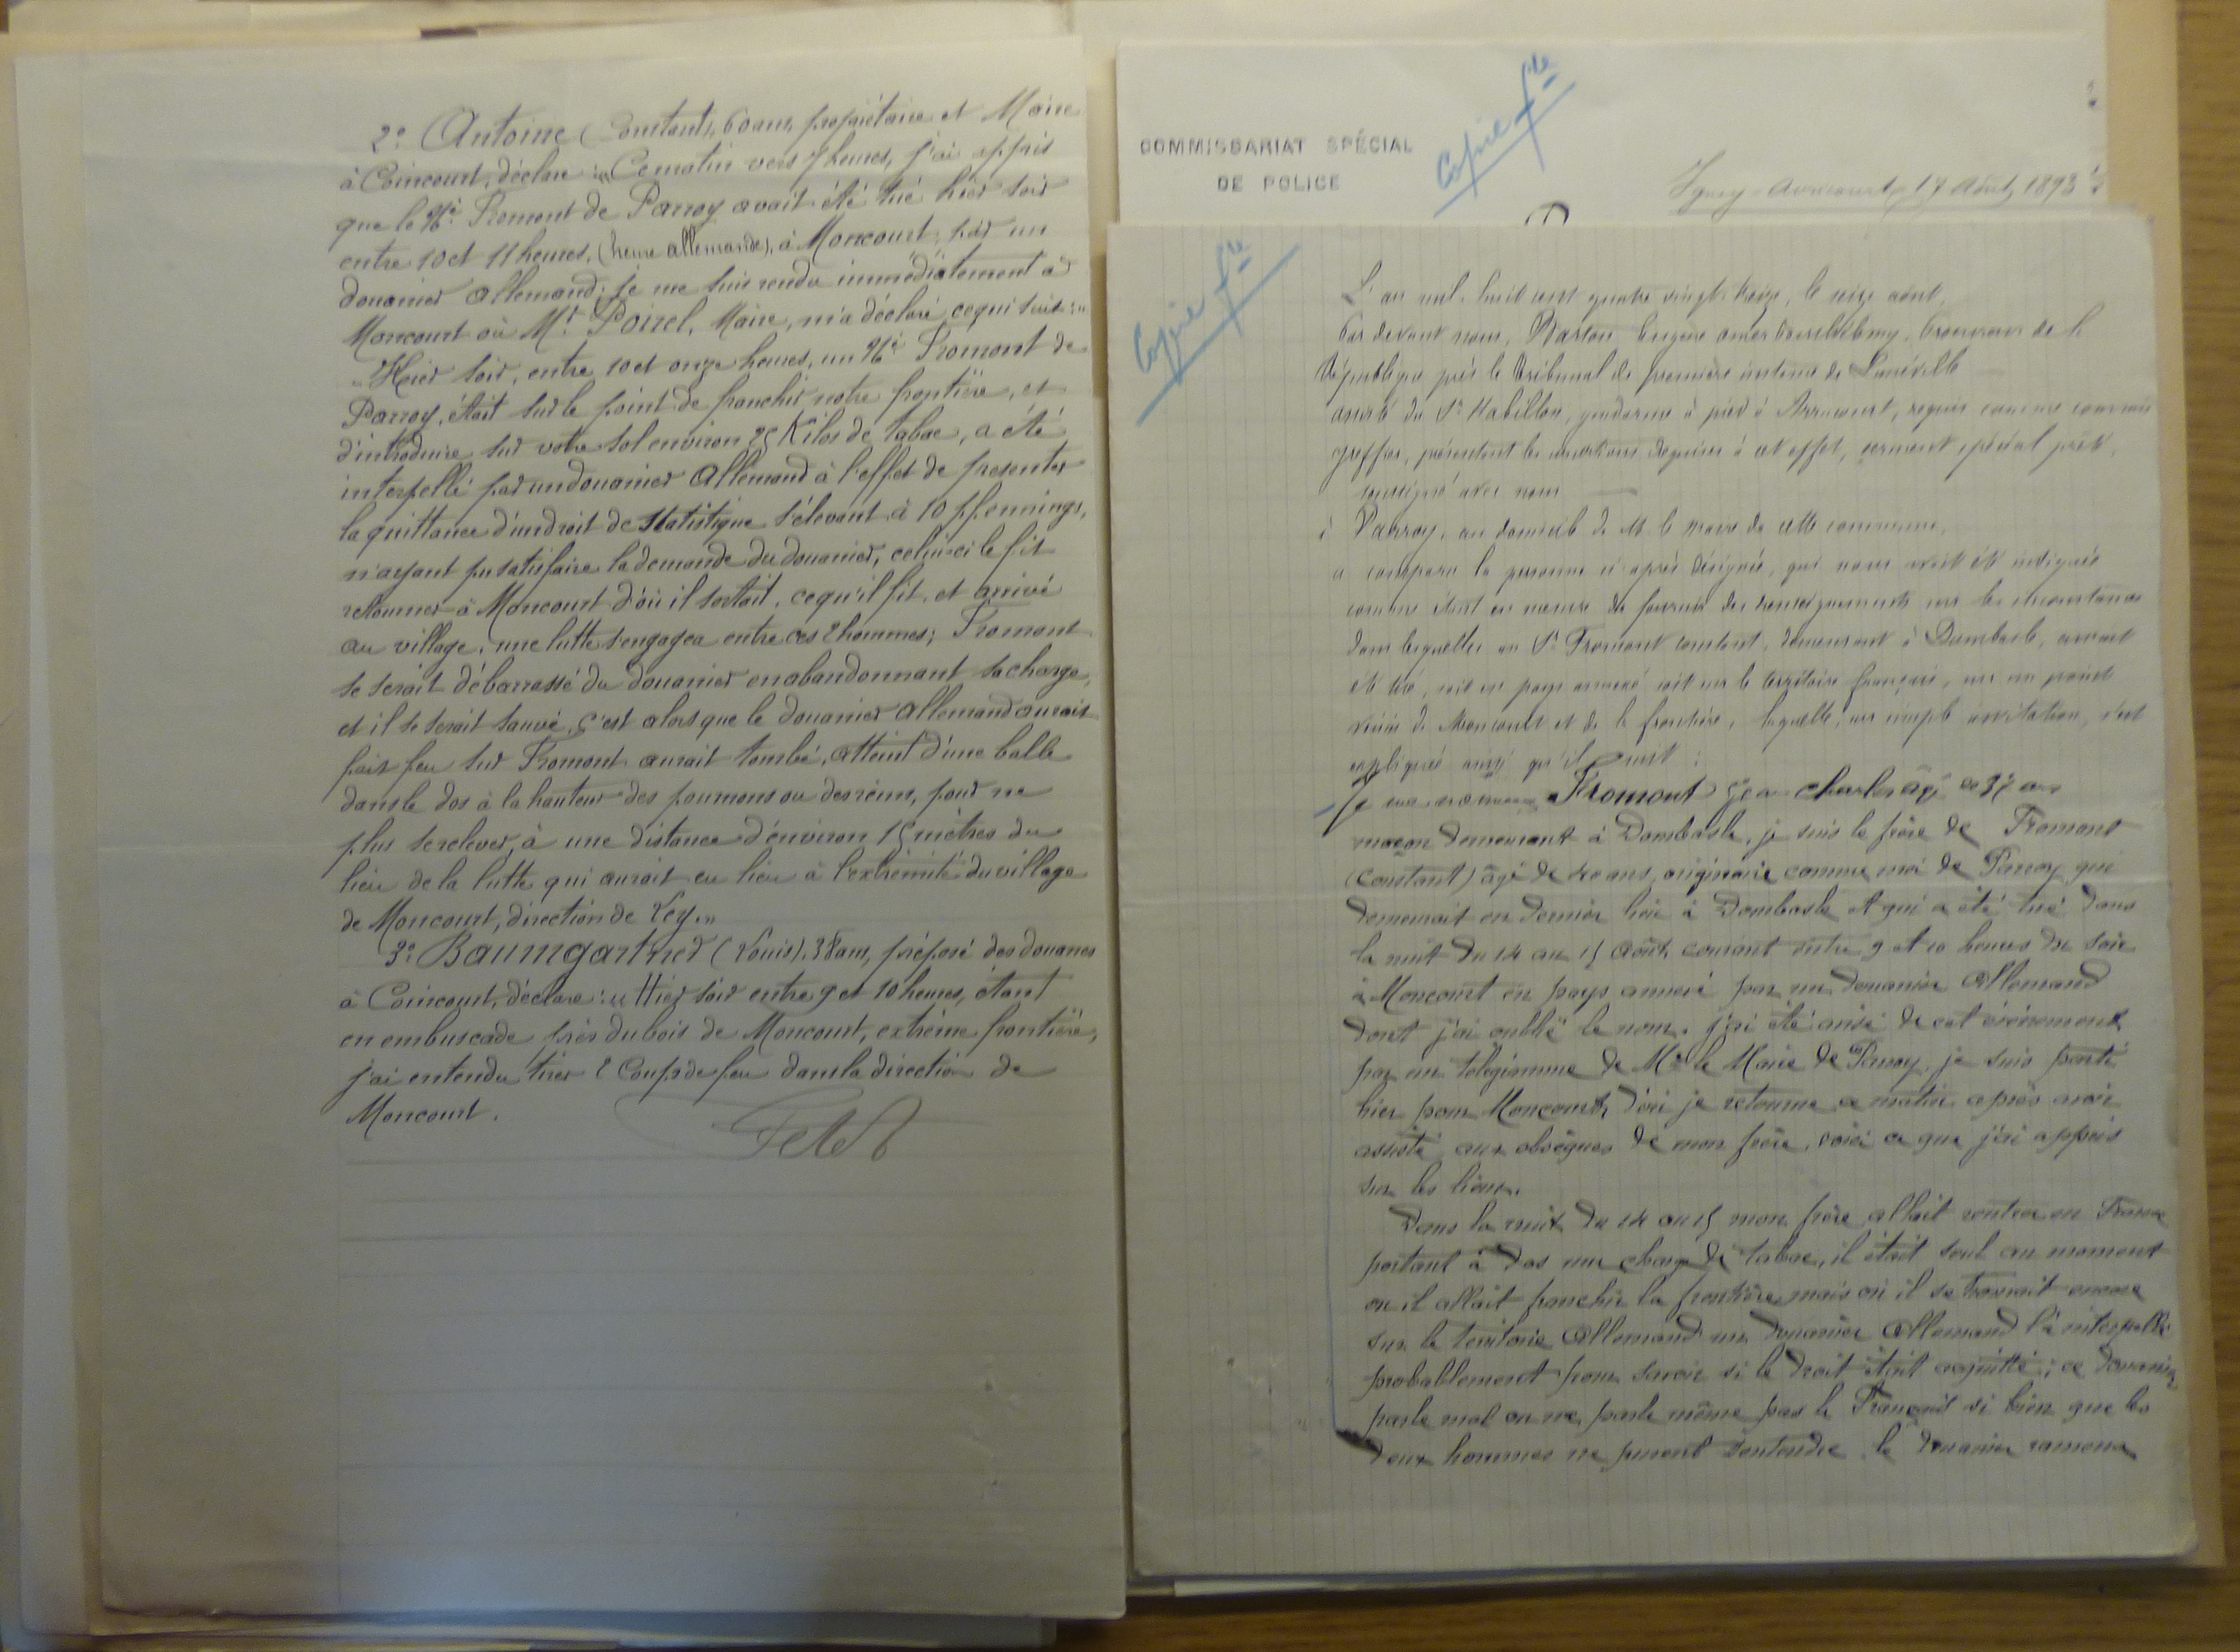 2° Antoine (Constant), 60 ans, propriétaire et Maire
à Coincourt, déclare : "Ce matin vers 7 heures, j'ai appris
que le né Fromont de Parroy avait été tué hier soir
entre 10 et 11 heures, (heure allemande), à Moncourt, par un
douanier allemand; je me suis rendu immédiatement à
Moncourt où Mr Poirel, Maire, m'a déclaré ce qui suit : "
"Hier soir, entre 10 et onze heures, un né Fromont de
Parroy, était sur le point de franchir notre frontière, et
d'introduire sur votre sol environ 25 Kilos de tabac, a été
interpellé par un douanier Allemand à l'effet de presenter
la quittance d'un droit de Statistique s'élevant à 10 pfennings,
n'ayant pu satisfaire la demande du douanier, celui-ci le fit
retourner à Moncourt d'où il sortait, ce qu'il fit, et arrivé
au village, une lutte s'engagea entre ces 2 hommes; Fromont
se serait débarrassé du douanier en abandonnant sa charge,
et il se serait sauvé, c'est alors que le douanier allemand aurait
fait feu sur Fromont aurait tombé, atteint d'une balle
dans le dos à la hauteur des poumons ou des reins, pour ne
plus se relever, à une distance d'environ 15 mètres du
lieu de la lutte qui aurait eu lieu à l'extrémité du village
de Moncourt, direction de Ley."
3° Baumgartner (Louis), 38 ans, préposé des douanes
à Coincourt, déclare : "Hier soir entre 9 et 10 heures, étant
en embuscade près du bois de Moncourt, extrême frontière,
j'ai entendu tirer 2 Coups de feu dans la direction de
Moncourt.
COMMISSARIAT SPÉCIAL
DE POLICE
Copie
Igney-Avricourt, 17 Août 1893
Copie
L'an mil huit cent quatre vingt treize, le seize août,
Par devant nous, Eugène Procureur de la
République près le tribunal de première instance de Lunéville
assisté du Sr Mabillon, gendarme à pied à Arracourt, requis comme commis
greffier, présentant les conditions requises à cet effet, serment spécial prêté,
soussigné avec nous
à Parroy, au domicile de M. le maire de cette commune,
a comparu la personne ci-après désignée, qui nous avait été indiquée
comme étant en mesure de fournir des renseignements sur les circonstances
dans lesquelles un Sr Fromont constant, demeurant à Dombasle, aurait
été tué, soit en pays annexé soit sur le territoire français, sur un point
voisin de Moncourt et de la frontière, laquelle, sur simple invitation, s'est
expliquée ainsi qu'il suit :
Je me nomme Fromont Jean charles âgé de 37 ans
maçon demeurant à Dombasle, je suis le frère de Fromont
(constant) âgé de 40 ans, originaire comme moi de Parroy qui
demeurait en dernier lieu à Dombasle et qui a été tué dans
la nuit du 14 au 15 août courant entre 9 et 10 heures du soir
à Moncourt en pays annexé par un douanier Allemand
dont j'ai oublié le nom. j'ai été avisé de cet évènement
par un télégramme de Mr le Maire de Parroy. je suis parti
hier pour Moncourt, d'où je retourne ce matin après avoir
assisté aux obsèques de mon frère, voici ce que j'ai appris
sur les lieux.
Dans la nuit du 14 au 15 mon frère allait rentrer en France
portant à dos une charge de tabac, il était seul au moment
où il allait franchir la frontière mais où il se trouvait encore
sur le territoire Allemand un douanier Allemand l'a interpellé
probablement pour savoir si le droit était acquitté; ce douanier
parle mal ou ne parle même pas le Français si bien que les
deux hommes ne purent s'entendre. le douanier ramena